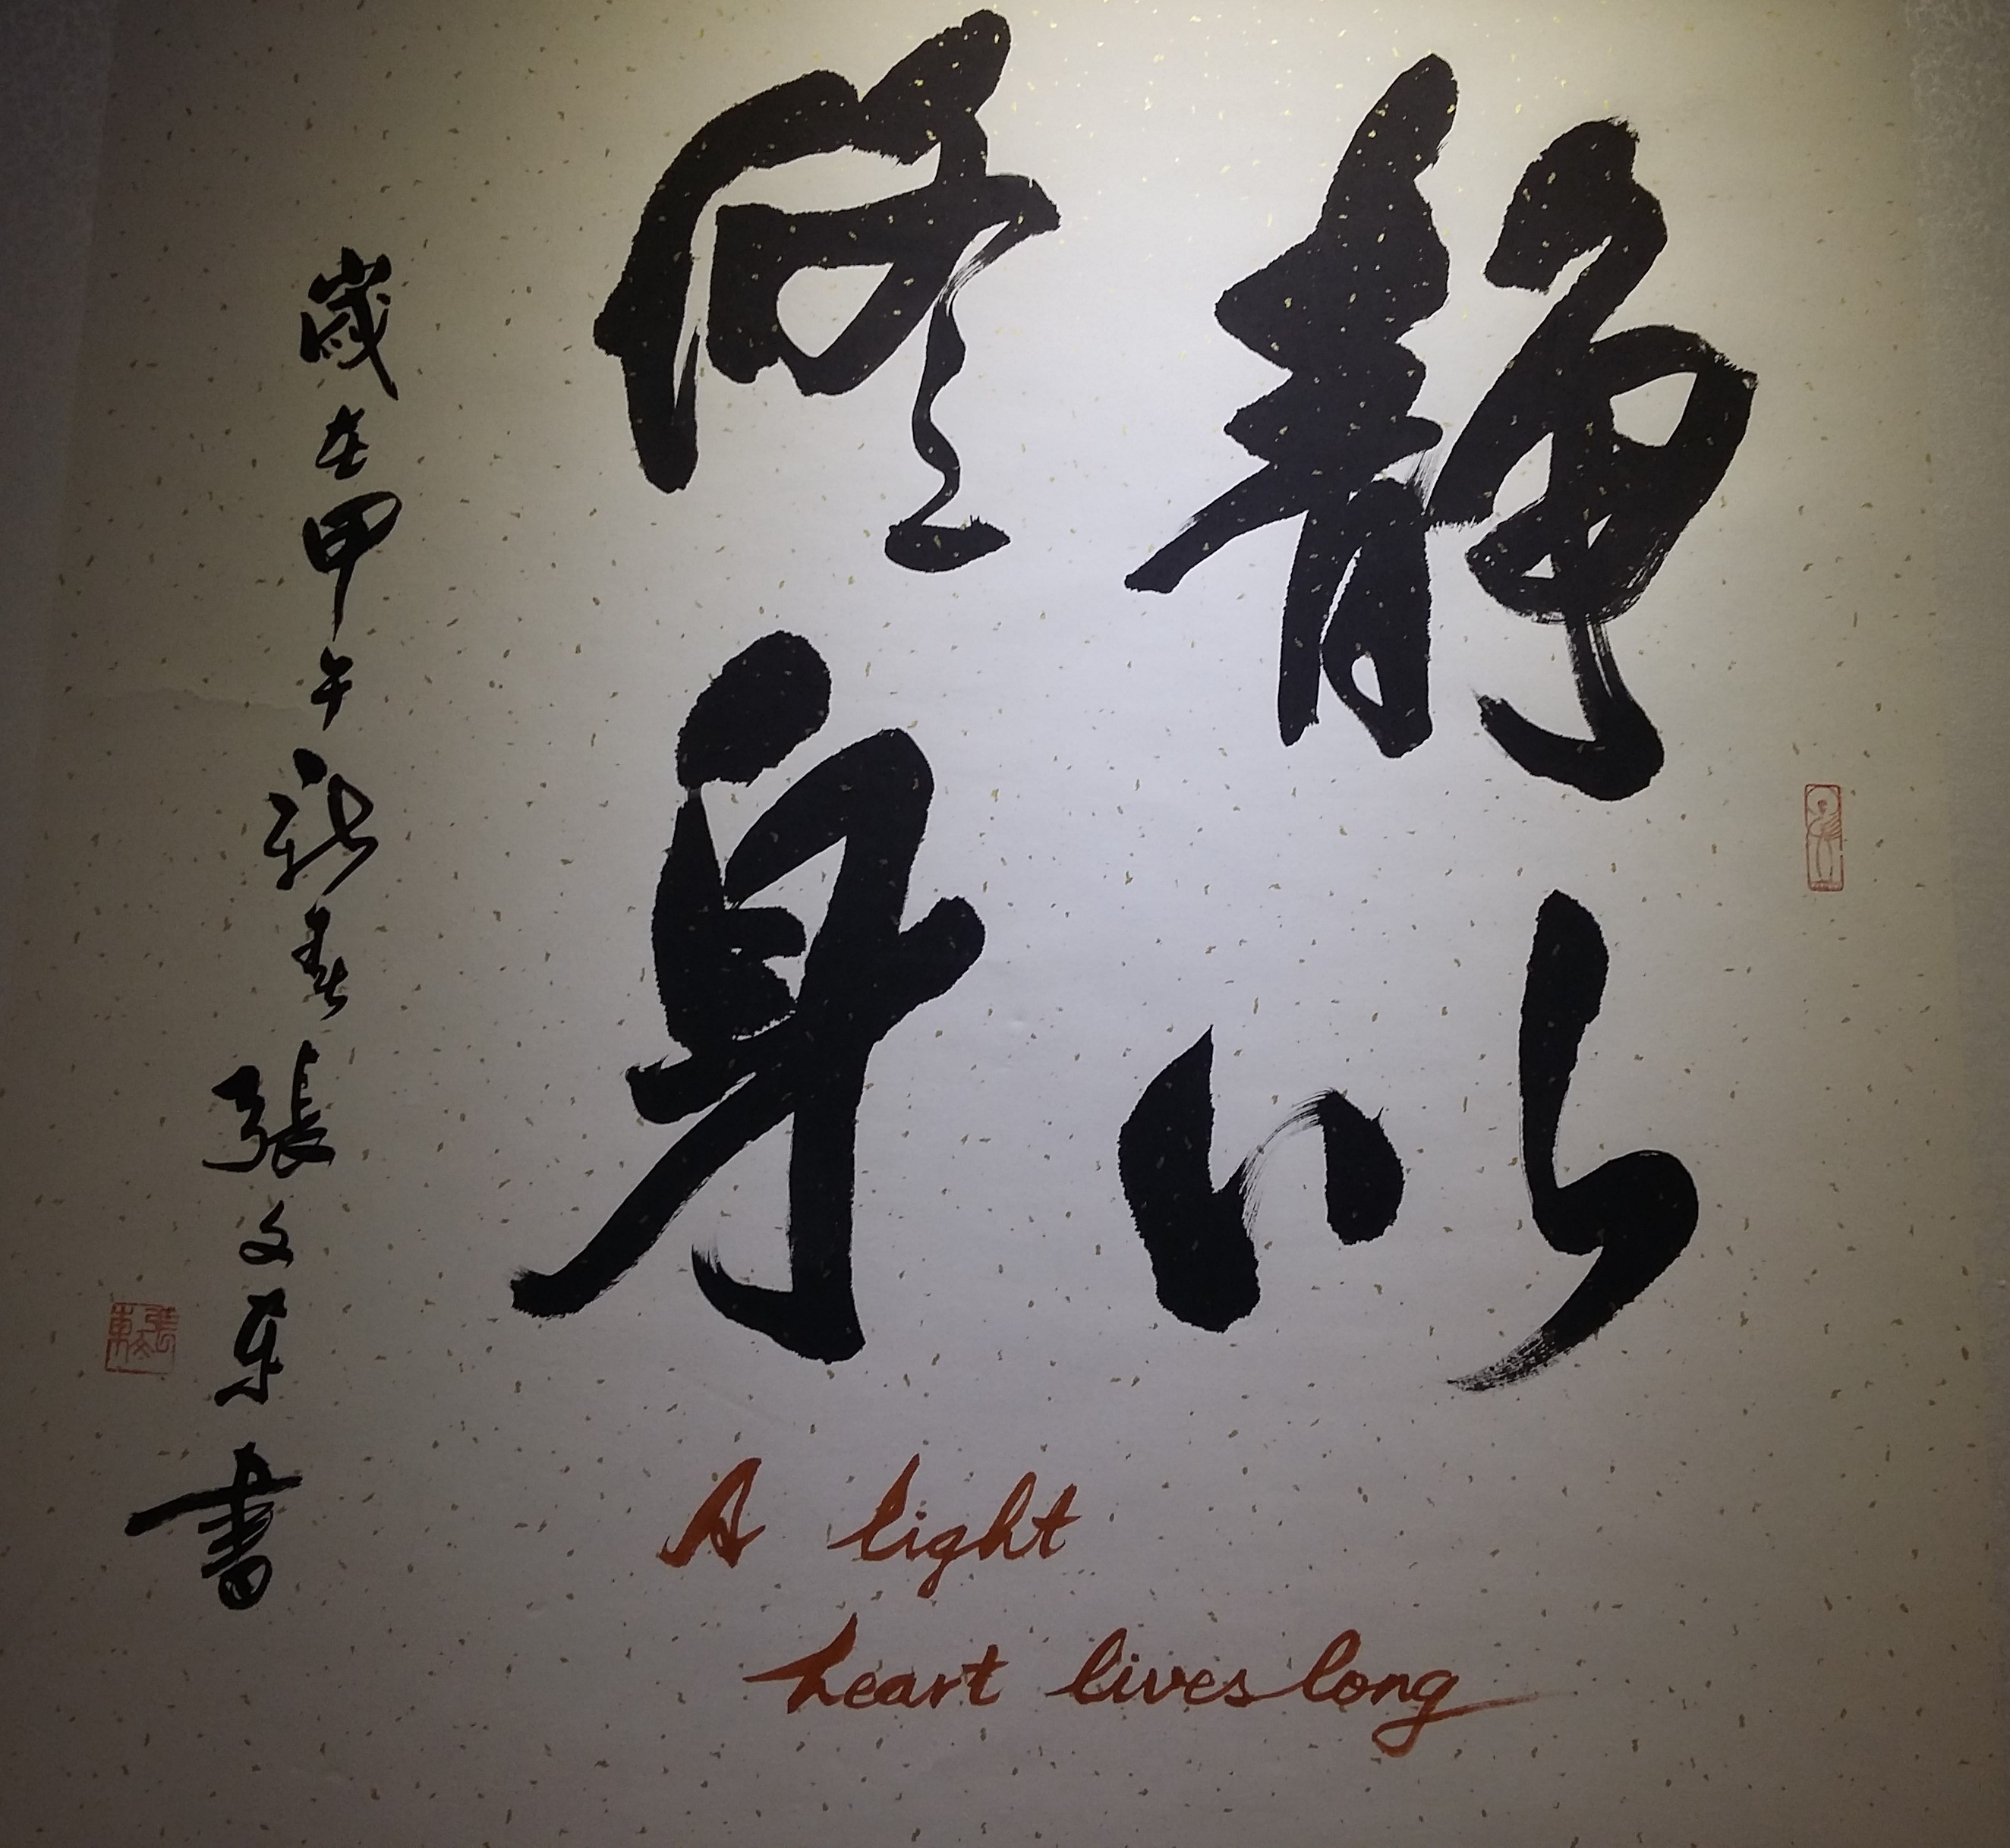 静以
修身
歲在甲午新春張文東書
張文東
A light
heart lives long